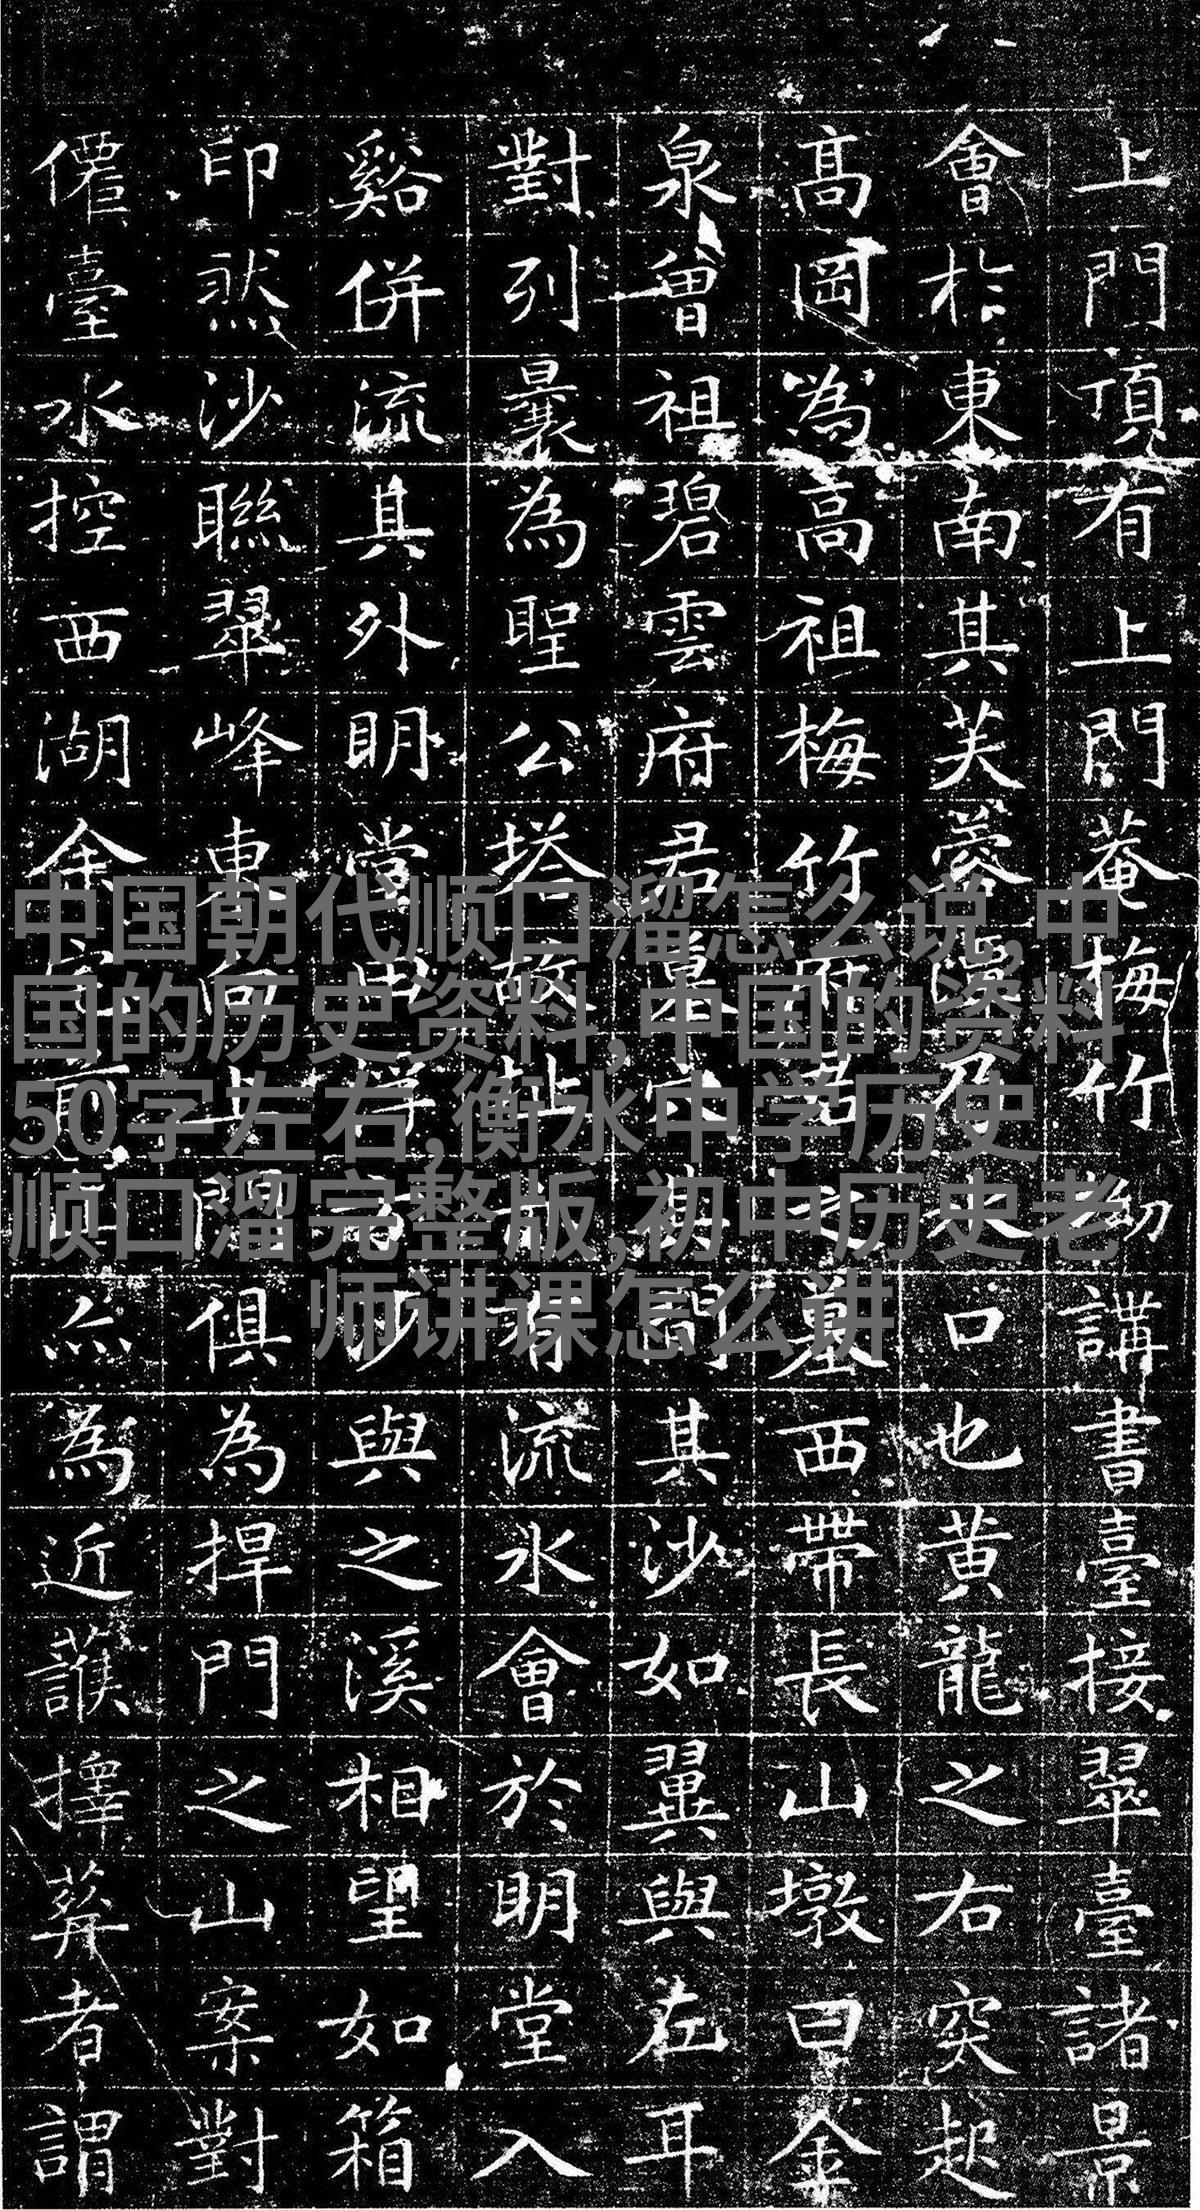 上門頂有上門菴梅竹拗講書臺接翠臺諸景
會於東南其芙蓉乃口也黃龍之右突起
高岡為高祖梅竹府君之墓西帶長山墩曰金
泉曾祖碧雲府君墓其沙如翼與左耳
對列曩為聖公塔故址有流水會於明堂入
谿併流其外明當沙與之溪相望如箱
印然沙聯翠峰東向上俱為捍門之山案對
僊臺水控西湖余前為近擇葬者謂
中国朝代顺口溜怎么说,中
国的历史资料,中国的资料
50字左右,衡水中学历史
顺口溜完整版,初中历史老
师讲课怎么讲